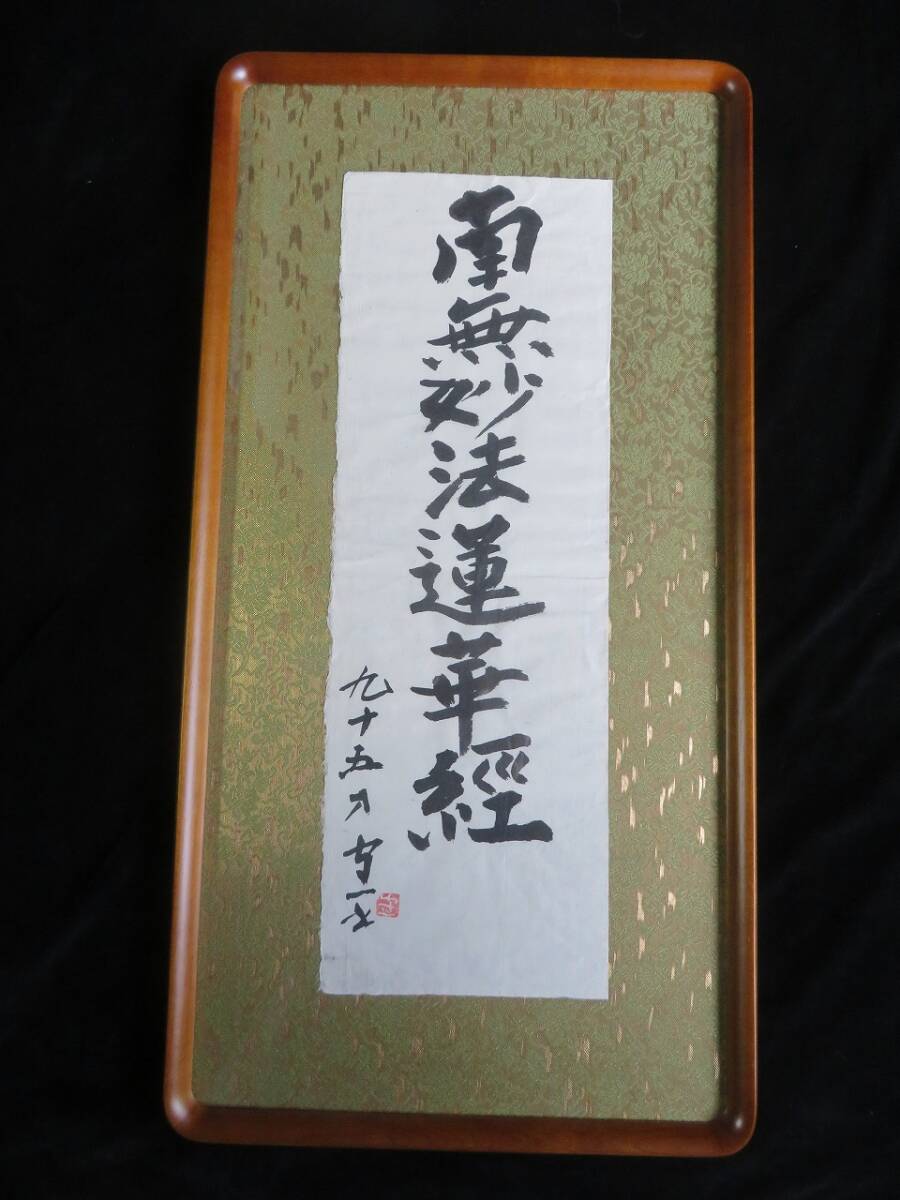 南無妙法蓮華經
九十五才